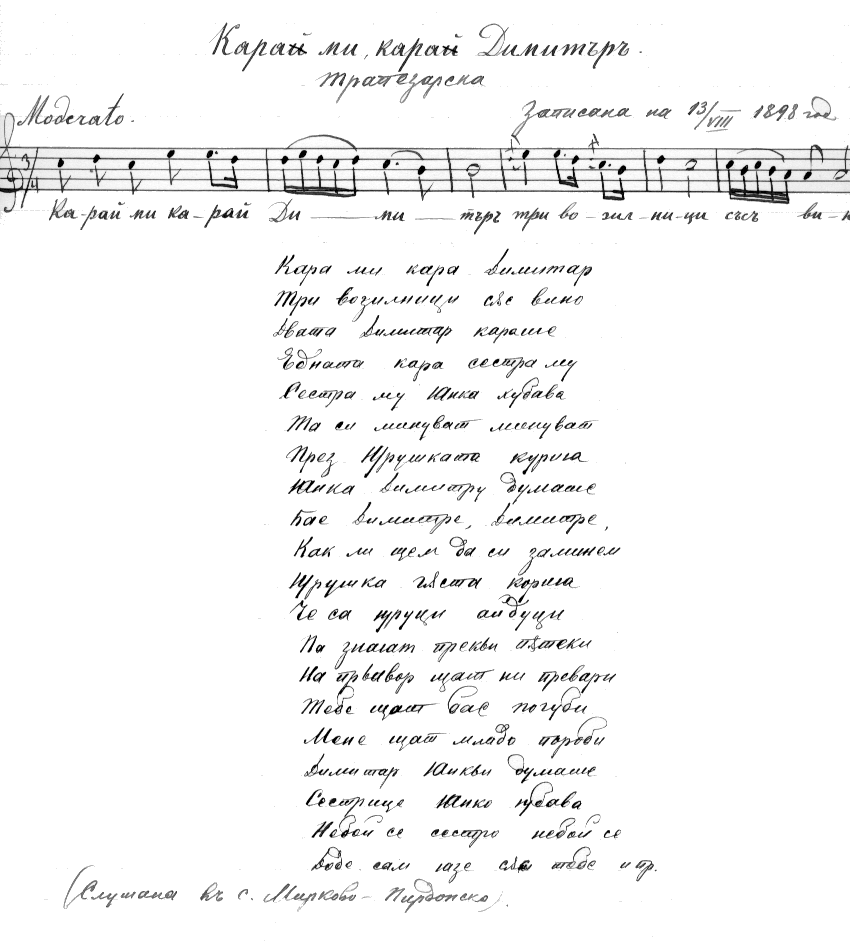 Карай ми, карай Димитъръ.
трапезарска
Moderato.
Записана на 13/VIII 1898 год
3/4
Ка-рай ми ка-рай Ди — ми — търъ три во-зил-ни-ци съсъ ви-н
Кара ми кара Димитар
Три возилници сѫс вино
Двата Димитар караше
Едната кара сестра му
Сестра му Юнка хубава
Та си минуват минуват
През Щрушката курия
Юнка Димитру думаше
Бае Димитре, Димитре,
Как ли щем да си заминем
Щрушка гѫста кория
Че са щруци айдуци
Па знаят прекви пѫтеки
На прьавор щат ни превари
Тебе щат бае погуби
Мене щат младо пороби
Димитар Юнкьи думаше
Сестрице Юнко убава
Небой се сестро небой се
Доде сам язе сѫс тебе и пр.
(Слушана въ с. Мирково - Пирдопско).